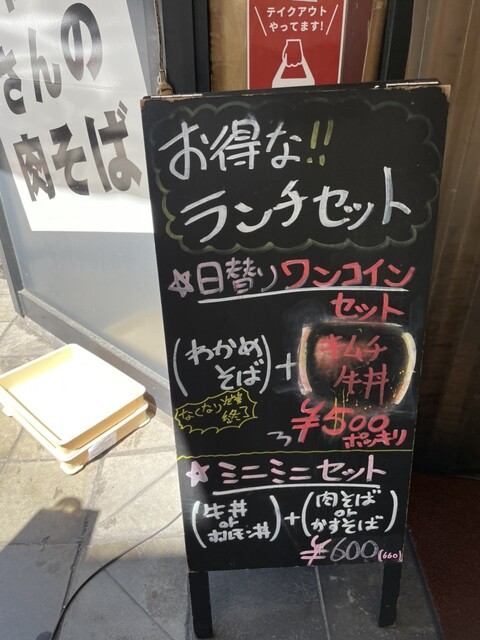 テイクアウト
やってます!
さんの
肉そば
お得な!!
ランチセット
☆日替りワンコイン
セット
(わかめ
そば)
+
キムチ
牛丼
なくなり次第
終了
¥500
ポッキリ
☆ミニミニセット
(牛丼
or
ホルモン丼)
+
(肉そば
or
かすそば)
¥600(660)